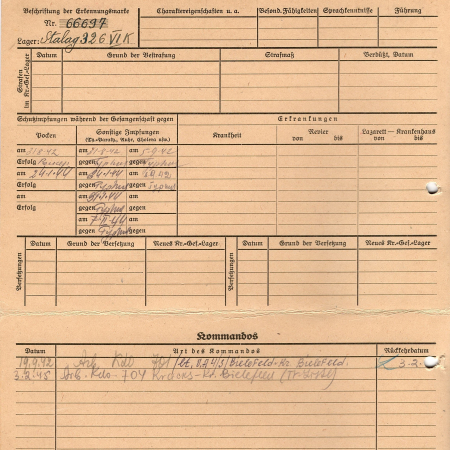 Beschriftung der Erkennungsmarke
Nr. 66697
Lager: Stalag 326 VI K
Charaktereigenschaften u. a.
Besond. Fähigkeiten
Sprachkenntnisse
Führung
Strafen im Kr.-Gef.-Lager
Datum
Grund der Bestrafung
Strafmaß
Verbüßt, Datum
Schutzimpfungen während der Gefangenschaft gegen
Erkrankungen
Pocken
Sonstige Impfungen
(Ty.-Paraty., Ruhr, Cholera usw.)
Krankheit
Revier
von bis
Lazarett — Krankenhaus
von bis
am am am 5.9.42
Erfolg gegen Typhus gegen Typhus
am 24.1.44 am 24.1.44 am
Erfolg gegen Typhus gegen Typhus
am am
Erfolg gegen Typhus
am 7.II.44
gegen Typhus
Versetzungen
Datum
Grund der Versetzung
Neues Kr.-Gef.-Lager
Versetzungen
Datum
Grund der Versetzung
Neues Kr.-Gef.-Lager
Kommandos
Datum
Art des Kommandos
Rückkehrdatum
19.9.42 Arb. Kdo 701 Bielefeld-Kr. Bielefeld. 3.2.45
3.2.45 Arb. Kdo-704 Kracks-Kr. Bielefeld